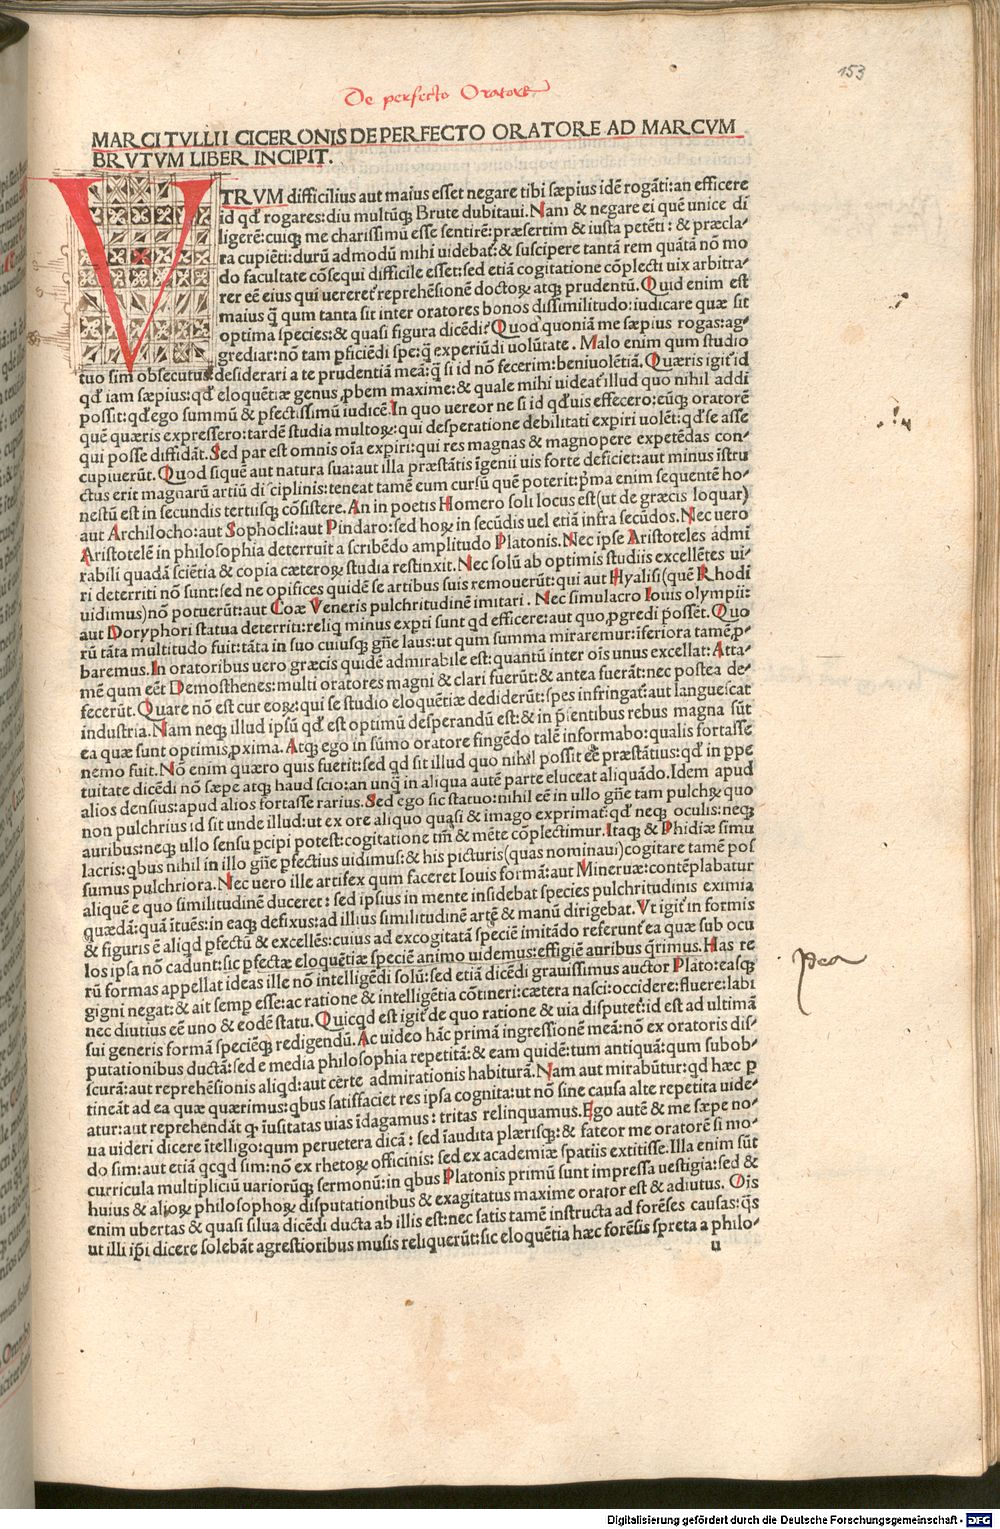 153
De perfecto Oratore
MARCI TVLLII CICERONIS DE PERFECTO ORATORE AD MARCVM
BRVTVM LIBER INCIPIT.
VTRVM difficilius aut maius esset negare tibi sæpius idē rogāti: an efficere
id qđ rogares: diu multūq; Brute dubitaui. Nam & negare ei quē unice di
ligerē: cuiq; me charissimū esse sentirē: præsertim & iusta petēti: & præcla-
ra cupiēti: durū admodū mihi uidebat̃: & suscipere tantā rem quātā nō mo
do facultate cōsequi difficile esset: sed etiā cogitatione cōplecti uix arbitra-
rer eē eius qui uereret̃ reprehēsionē doctoꝝ atq; prudentū. Quid enim est
maius q̄ qum tanta sit inter oratores bonos dissimilitudo: iudicare quæ sit
optima species: & quasi figura dicēdi? Quod quoniā me sæpius rogas: ag-
grediar: nō tam ꝑficiēdi spe: q̄ experiūdi uolūtate. Malo enim qum studio
tuo sim obsecutus: desiderari a te prudentiā meā: q̄ si id nō fecerim: beniuolētiā. Quæris igit̃ id
qđ iam sæpius: qđ eloquētiæ genus ꝓbem maxime: & quale mihi uideat̃ illud quo nihil addi
possit: qđ ego summū & ꝑfectissimū iudicē. In quo uereor ne si id qđ uis effecero: eūq; oratorē
quē quæris expressero: tardē studia multoꝝ: qui desperatione debilitati expiri uolēt: qđ se asse
qui posse diffidāt. Sed par est omnis oīa expiri: qui res magnas & magnopere expetēdas con-
cupiuerūt. Quod siquē aut natura sua: aut illa præstātis īgenii uis forte deficiet: aut minus īstru
ctus erit magnarū artiū disciplinis: teneat tamē eum cursū quē poterit: pr̄ma enim sequentē ho-
nestū est in secundis tertiisq; cōsistere. An in poetis Homero soli locus est (ut de græcis loquar)
aut Archilocho: aut Sophocli: aut Pindaro: sed hoꝝ in secūdis uel etiā infra secūdos. Nec uero
Aristotelē in philosophia deterruit a scribēdo amplitudo Platonis. Nec ipse Aristoteles admi
rabili quadā sciētia & copia cæteroꝝ studia restinxit. Nec solū ab optimis studiis excellētes ui-
ri deterriti nō sunt: sed ne opifices quidē se artibus suis remouerūt: qui aut Hyalisi (quē Rhodi
uidimus) nō potuerūt: aut Coæ Veneris pulchritudinē imitari. Nec simulacro Iouis olympii:
aut Doryphori statua deterriti: reliq minus exꝑti sunt qđ efficere: aut quo ꝓgredi possēt. Quo
rū tāta multitudo fuit: tāta in suo cuiusq; gn̄e laus: ut qum summa miraremur: īferiora tamē ꝓ-
baremus. In oratoribus uero græcis quidē admirabile est: quantū inter oīs unus excellat: Atta-
mē qum eēt Demosthenes: multi oratores magni & clari fuerūt: & antea fuerāt: nec postea de-
fecerūt. Quare nō est cur eoꝝ: qui se studio eloquētiæ dediderūt: spes infringat̃: aut languescat
industria. Nam neq; illud ipsū qđ est optimū desperandū est: & in p̄stentibus rebus magna sūt
ea quæ sunt optimis ꝓxima. Atq; ego in sūmo oratore fingēdo talē informabo: qualis fortasse
nemo fuit. Nō enim quæro quis fuerit: sed qđ sit illud quo nihil possit eē præstātius: qđ in ꝑpe
tuitate dicēdi nō sæpe atq; haud scio: an unq̄ in aliqua autē parte eluceat aliquādo. Idem apud
alios densius: apud alios fortasse rarius. Sed ego sic statuo: nihil eē in ullo gn̄e tam pulchꝝ quo
non pulchrius id sit unde illud: ut ex ore aliquo quasi & imago exprimat̃: qđ neq; oculis: neq;
auribus: neq; ullo sensu ꝑcipi potest: cogitatione tm̄ & mēte cōplectimur. Itaq; & Phidiæ simu
lacris: qbus nihil in illo gn̄e ꝑfectius uidimus: & his picturis (quas nominaui) cogitare tamē pos
sumus pulchriora. Nec uero ille artifex qum faceret Iouis formā: aut Mineruæ: contēplabatur
aliquē e quo similitudinē duceret: sed ipsius in mente insidebat species pulchritudinis eximia
quædā: quā ītuēs: in eaq; defixus: ad illius similitudinē artē & manū dirigebat. Vt igit̃ in formis
& figuris ē aliqđ ꝑfectū & excellēs: cuius ad excogitatā speciē imitādo referunt̃ ea quæ sub ocu
los ipsa nō cadunt: sic ꝑfectæ eloquētiæ speciē animo uidemus: effigiē auribus q̄rimus. Has re
rū formas appellat ideas ille nō intelligēdi solū: sed etiā dicēdi grauissimus auctor Plato: easq;
gigni negat: & ait semꝑ esse: ac ratione & intelligētia cōtineri: cætera nasci: occidere: fluere: labi
nec diutius eē uno & eodē statu. Quicqđ est igit̃ de quo ratione & uia disputet̃: id est ad ultimā
sui generis formā speciēq; redigendū. Ac uideo hāc primā ingressionē meā: nō ex oratoris dis-
putationibus ductā: sed e media philosophia repetitā: & eam quidē: tum antiquā: qum subob-
scurā: aut reprehēsionis aliqđ: aut certe admirationis habiturā. Nam aut mirabūtur: qđ hæc ꝑ
tineāt ad ea quæ quærimus: qbus satisfaciet res ipsa cognita: ut nō sine causa alte repetita uide-
atur: aut reprehendāt q̵ iusitatas uias īdagamus: tritas relinquamus. Ego autē & me sæpe no-
ua uideri dicere ītelligo: qum peruetera dicā: sed īaudita plærisq;: & fateor me oratorē si mo-
do sim: aut etiā qcqđ sim: nō ex rhetoꝝ officinis: sed ex academiæ spatiis extitisse. Illa enim sūt
curricula multipliciū uariorūq; sermonū: in qbus Platonis primū sunt impressa uestigia: sed &
huius & alioꝝ philosophoꝝ disputationibus & exagitatus maxime orator est & adiutus. Oīs
enim ubertas & quasi silua dicēdi ducta ab illis est: nec satis tamē instructa ad forēses causas: q̄s
ut illi ip̄i dicere solebāt agrestioribus musis reliquerūt: sic eloquētia hæc forēsis spreta a philo-
u
Digitalisierung gefördert durch die Deutsche Forschungsgemeinschaft - DFG